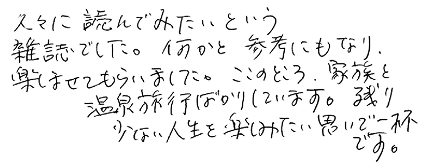 久々に読んでみたいという
雑誌でした。何かと参考にもなり、
楽しませてもらいました。ここのところ、家族と
温泉旅行ばかりしています。残り
少ない人生を楽しみたい思いで一杯
です。